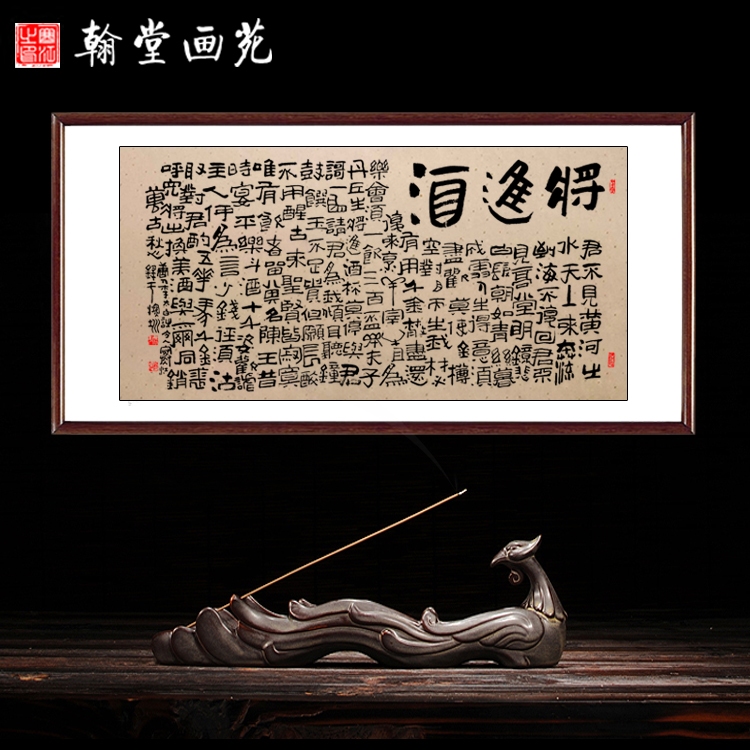 翰堂画苑
將進酒
君不見黃河之
水天上來奔流
到海不復回君不
見高堂明鏡悲
白髮朝如青絲暮
成雪人生得意須
盡歡莫使金樽
空對月天生我材必
有用千金散盡還
復來烹羊宰牛且為
樂會須一飲三百盃岑夫子
丹丘生將進酒杯莫停與君
謌一曲請君為我傾耳聽鐘
鼓饌玉不足貴但願長醉
不用醒古來聖賢皆寂寞
唯有飲者留其名陳王昔
時宴平樂斗酒十千恣歡謔
主人何為言少錢徑須沽
取對君酌五花馬千金裘
呼兒將出換美酒與爾同銷
萬古愁